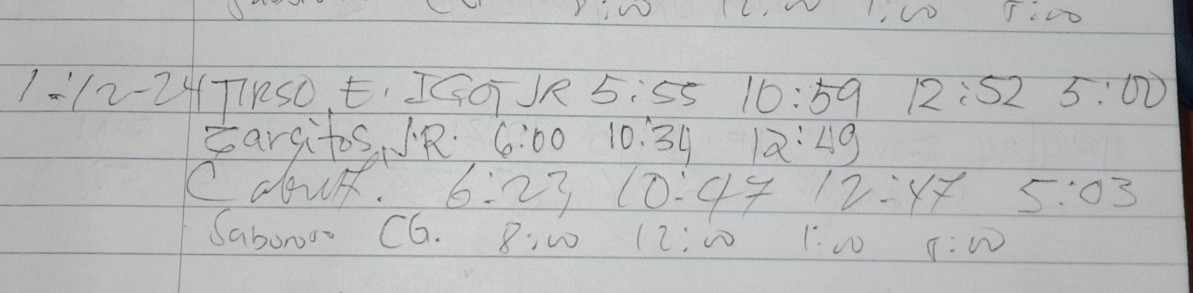 CG 8:00 12:00 1:00 5:00
1-12-24 TIRSO E. IGOT JR 5:55 10:59 12:52 5:00
Zarcitos, JR. 6:00 10:34 12:49
Cabutt. 6:23 10:47 12:47 5:03
CG. 8:00 12:00 1:00 5:00